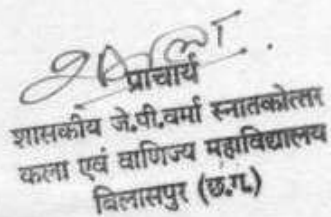 प्राचार्य
शासकीय जे.पी.वर्मा स्नातकोत्तर
कला एवं वाणिज्य महाविद्यालय
विलासपुर (छ.ग.)